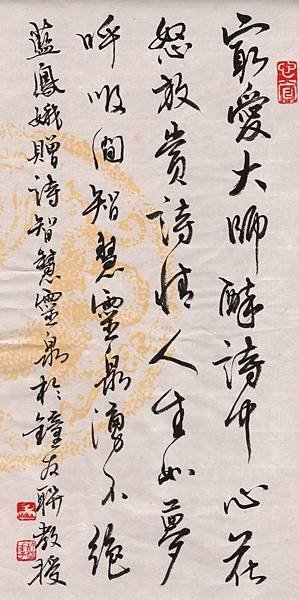 最愛大師醉詩中心花
怒放賞詩情人生如夢
呼吸間智慧靈泉湧不絕
藍鳳娥贈詩智慧靈泉於鐘友聯教授